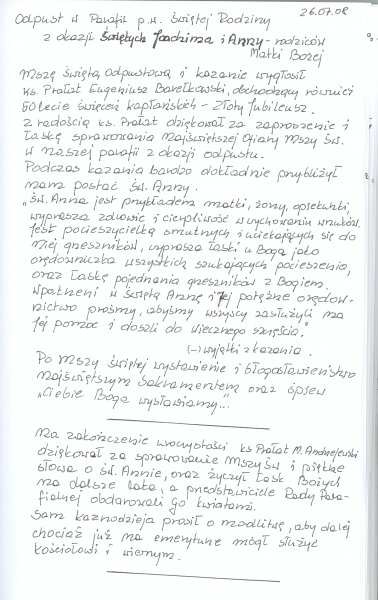 26.07.08
Odpust w Parafii p.w. Świętej Rodziny
z okazji Świętych Joachima i Anny - rodziców
Matki Bożej
Mszę świętą odpustową i kazanie wygłosił
ks. Prałat Eugeniusz Barełkowski, obchodzący również
50 lecie święceń kapłańskich - Złoty Jubileusz.
Z radością ks. Prałat dziękował za zaproszenie i
łaskę sprawowania Najświętszej Ofiary Mszy Św.
w naszej parafii z okazji odpustu.
Podczas kazania bardzo dokładnie przybliżył
nam postać św. Anny.
„Św. Anna jest przykładem matki, żony, opiekunki,
wyprasza zdrowie i cierpliwość w wychowaniu wnuków.
Jest pocieszycielką smutnych i uciekających się do
Niej grzeszników, wyprasza łaski u Boga jako
orędowniczka wszystkich szukających pocieszenia,
oraz łaskę pojednania grzeszników z Bogiem.
Wpatrzeni w świętą Annę i Jej potężne orędow-
nictwo prośmy, abyśmy wszyscy zasłużyli na
Jej pomoc i doszli do wiecznego szczęścia."
(-) wyjątki z kazania.
Po Mszy świętej wystawienie i błogosławieństwo
Najświętszym Sakramentem oraz śpiew
„Ciebie Boga wysławiamy..."
Na zakończenie uroczystości ks Prałat M. Andrzejewski
dziękował za sprawowanie Mszy Św i piękne
słowa o św. Annie, oraz życzył łask Bożych
na dalsze lata, a przedstawiciele Rady Para-
fialnej obdarowali Go kwiatami.
Sam kaznodzieja prosił o modlitwę, aby dalej
chociaż już na emeryturze mógł służyć
Kościołowi i wiernym.